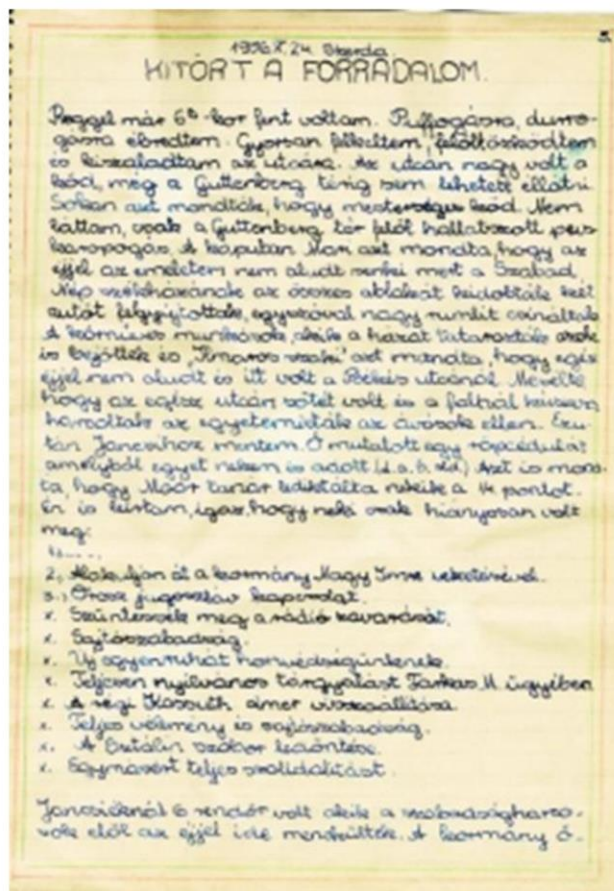 5.
1956. X. 24. Szerda.
KITÖRT A FORRADALOM.
Reggel már 6h-kor fent voltam. Puffogásra, durro-
gásra ébredtem. Gyorsan felkeltem, felöltözködtem
és kiszaladtam az utcára. Az utcán nagy volt a
köd, még a Guttenberg térig sem lehetett ellátni.
Sokan azt mondták, hogy mesterséges köd. Nem
láttam, csak a Guttenberg tér felől hallatszott pus-
karopogás. A kapuban Mari azt mondta, hogy az
éjjel az emeleten nem aludt senki mert a Szabad
Nép székházának az összes ablakát kidobták két
autót felgyújtottak, egyszóval nagy rumlit csináltak.
A kőműves munkások, akik a házat tatarozták azok
is bejöttek és "Timáros szaki" azt mondta, hogy egész
éjjel nem aludt és itt volt a Békés utcánál. Mesélte
hogy az egész utcán sötét volt és a falnál
harcoltak az egyetemisták az ávósok ellen. Ezu-
tán Jancsihoz mentem. Ő mutatott egy röpcédulát
amelyből egyet nekem is adott Azt is mond-
ta, hogy Moór tanár lediktálta nekik a 14 pontot.
Én is leírtam, igaz, hogy neki csak hiányosan volt
meg:
1.,.....
2., Alakuljon át a kormány Nagy Imre vezetésével.
3., Orosz jugoszláv kapcsolat.
x. Szüntessék meg a rádió zavarását.
x. Sajtószabadság.
x. Új egyenruhát honvédségünknek.
x. Teljesen nyilvános tárgyalást Farkas M. ügyében
x. A régi Kossuth címer visszaállítása.
x. Teljes vélemény és sajtószabadság.
x. A Sztálin szobor ledöntése.
x. Egymásért teljes szolidalitást.
Jancsiéknál 6 rendőr volt akik a szabadságharco-
sok elől az éjjel ide menekültek. A kormány ő-